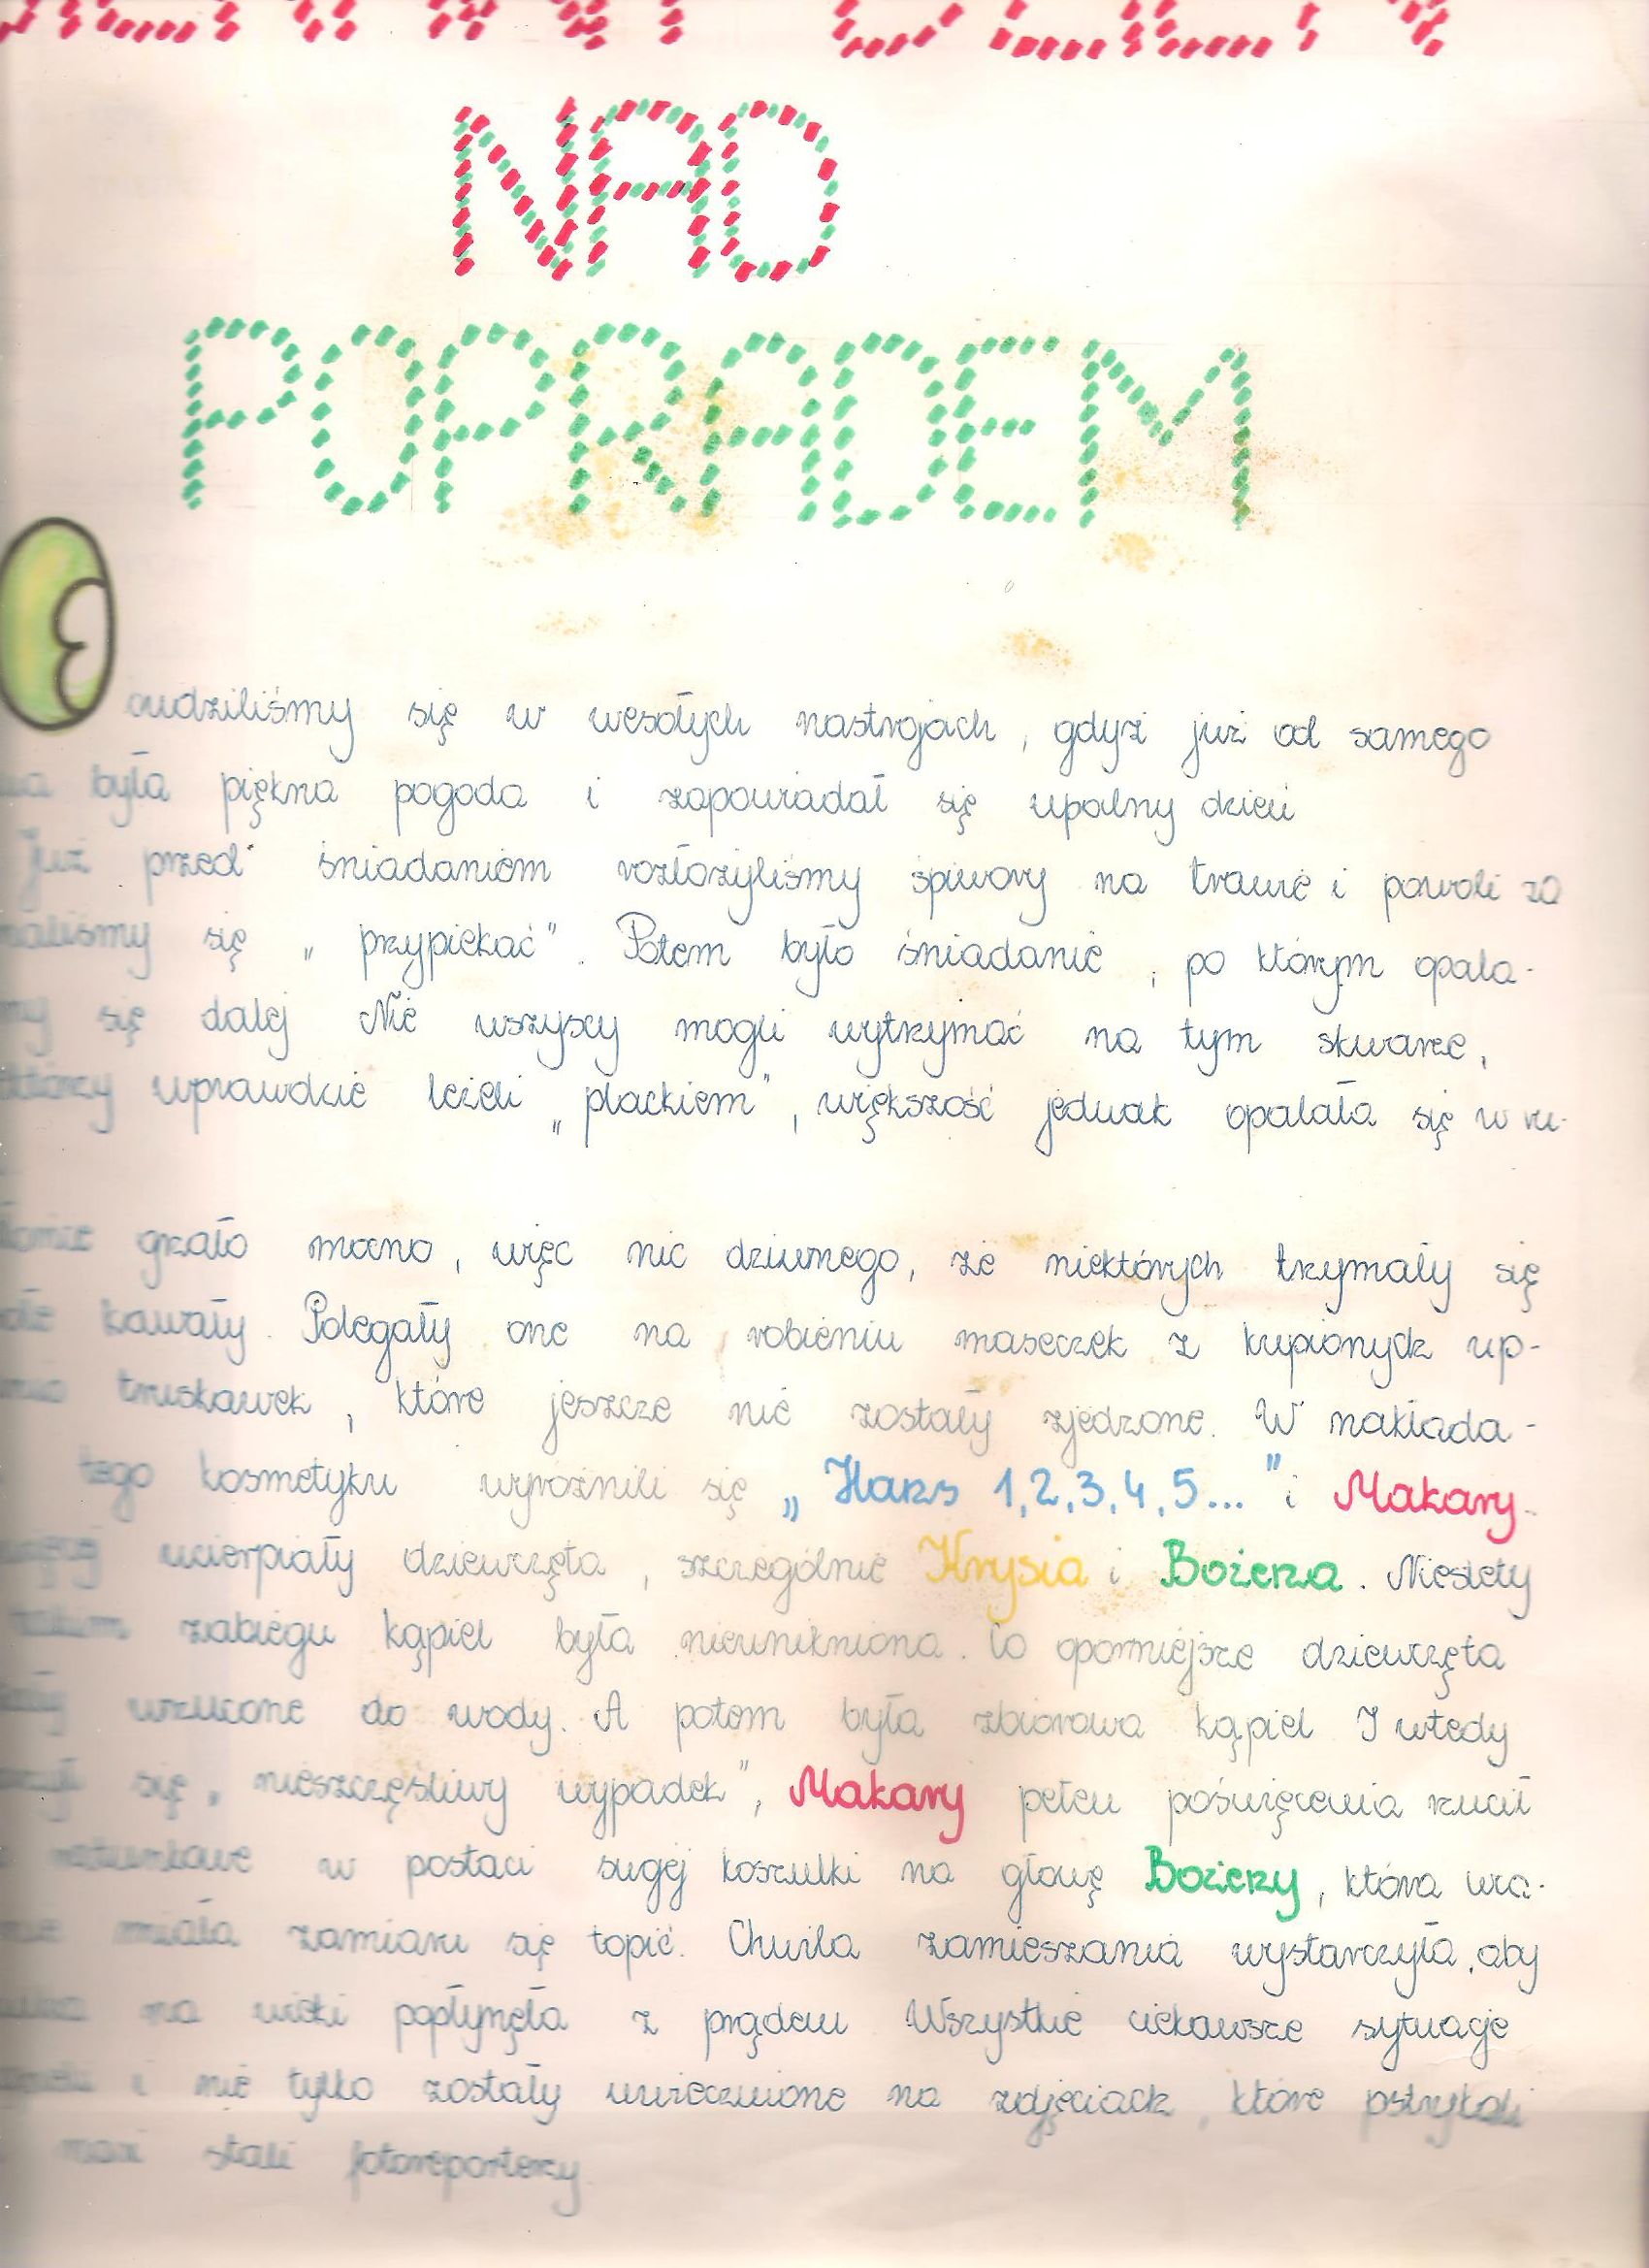 NAD
POPRADEM
Obudziliśmy się w wesołych nastrojach, gdyż już od samego
była piękna pogoda i zapowiadał się upalny dzień
Już przed śniadaniem rozłożyliśmy śpiwory na trawie i powoli za
naliśmy się „przypiekać". Potem było śniadanie, po którym opala-
my się dalej Nie wszyscy mogli wytrzymać na tym skwarze,
którzy wprawdzie leżeli „plackiem", większość jednak opalała się w ru-
grzało mocno, więc nic dziwnego, że niektórych trzymały się
kawały. Polegały one na robieniu maseczek z kupionych up-
truskawek, które jeszcze nie zostały zjedzone. W nakłada-
tego kosmetyku wyróżnili się „Hazs 1,2,3,4,5..." i Makary.
ucierpiały dziewczęta, szczególnie Krysia i Bożena. Niestety
takim zabiegu kąpiel była nieunikniona. Co oporniejsze dziewczęta
wrzucone do wody. A potem była zbiorowa kąpiel I wtedy
się „nieszczęśliwy wypadek", Makary pełen poświęcenia rzucił
ratunkowe w postaci swojej koszulki na głowę Bożeny, która wca-
nie miała zamiaru się topić. Chwila zamieszania wystarczyła, aby
na wieki popłynęła z prądem Wszystkie ciekawsze sytuacje
i nie tylko zostały uwiecznione na zdjęciach, które pstrykali
nasi stali fotoreporterzy.